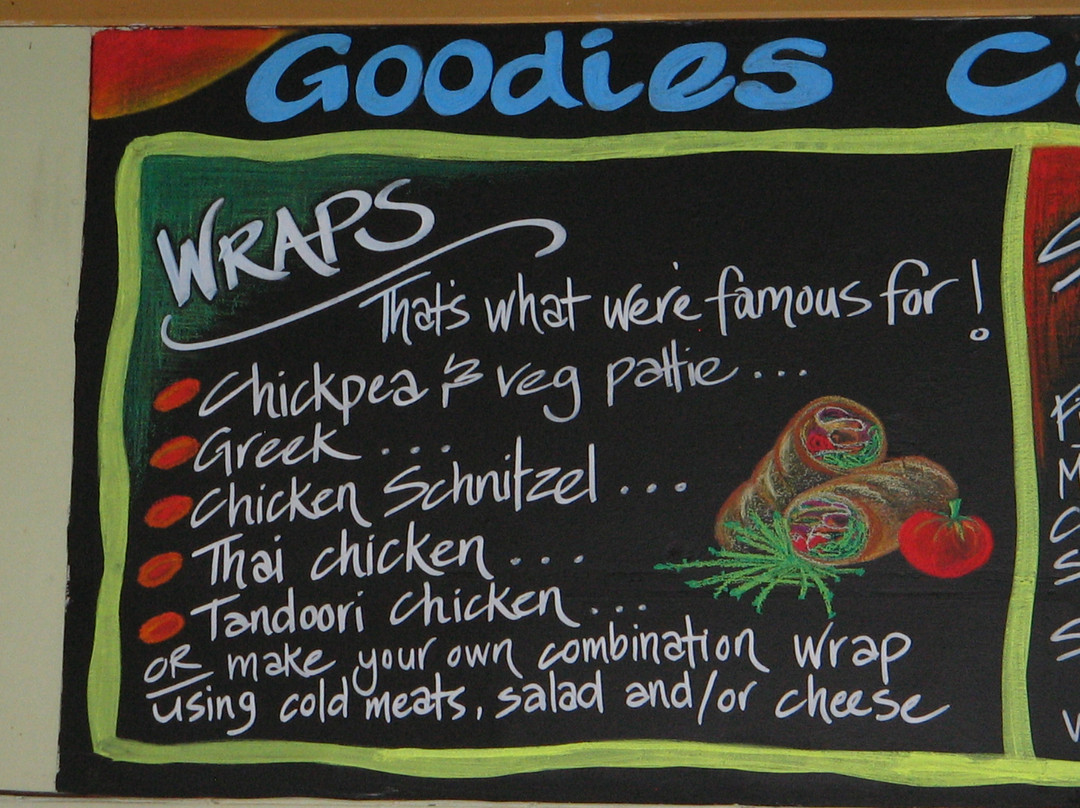 Goodies
WRAPS
That's what we're famous for!
Chickpea & veg pattie...
Greek....
Chicken Schnitzel...
Thai chicken...
Tandoori chicken...
OR make your own combination wrap
using cold meats, salad and/or cheese